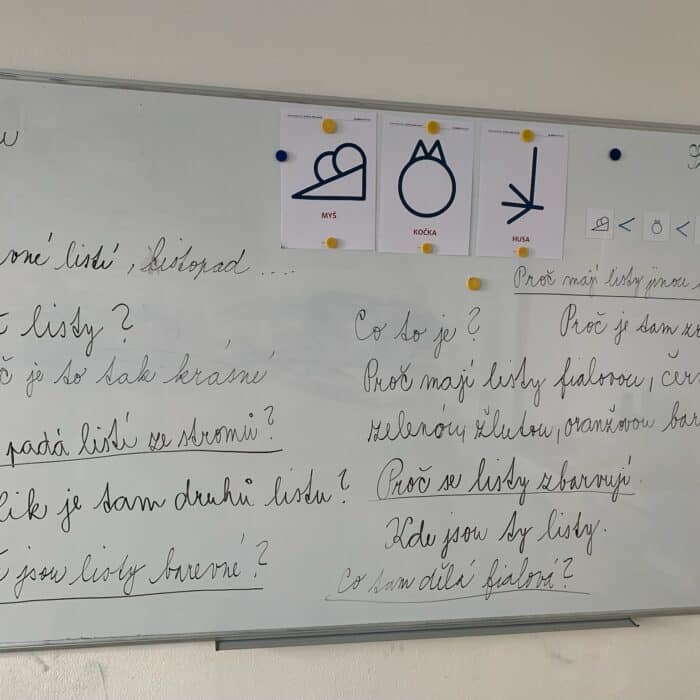 listí, listopad ....
listy?
je to tak krásné
padá listí ze stromů?
je tam druhů listu?
jsou listy barevné?
MYŠ
KOČKA
HUSA
< <
Proč mají listy jinou
Co to je? Proč je tam
Proč mají listy fialovou, čer
zelenou, žlutou, oranžovou bar
Proč se listy zbarvují.
Kde jsou ty listy.
Co tam dělá fialová?